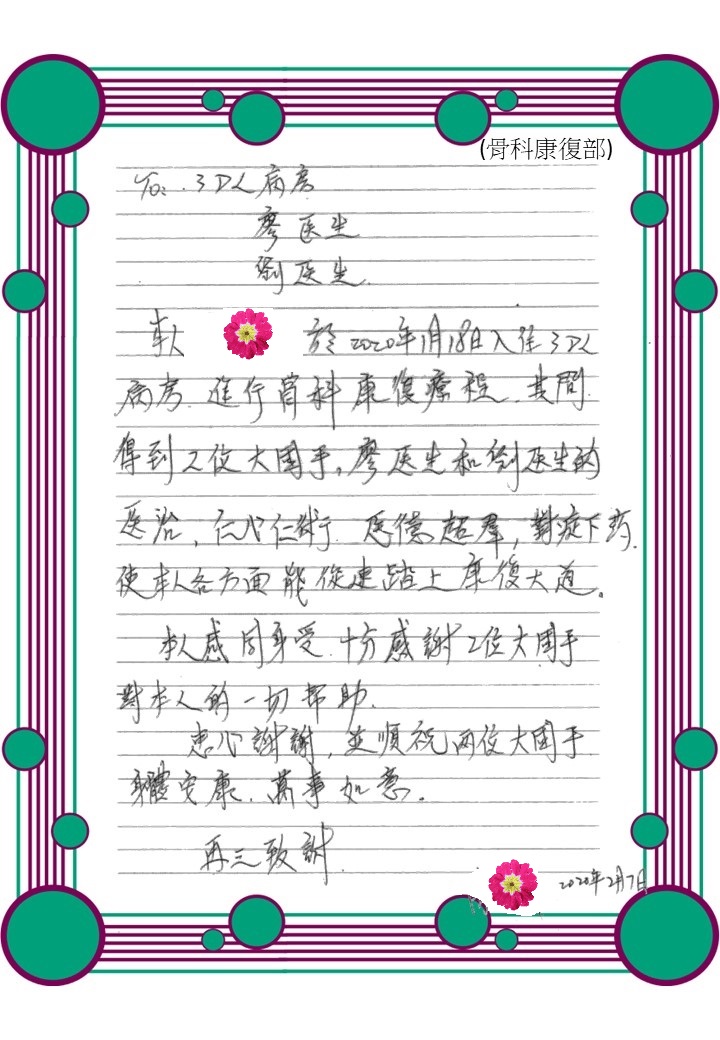 (骨科康復部)
To: 3DL病房
廖医生
劉医生.
本人 於2020年1月18日入住3DL
病房.進行骨科康復療程.其間
得到2位大国手,廖医生和劉医生的
医治,仁心仁術.医德超羣,對症下药.
使本人各方面能從速踏上康復大道。
本人感同身受.十分感謝2位大国手
對本人的一切帮助.
忠心謝謝,並順祝两位大国手
身體安康.萬事如意。
再三致謝.
2020年2月7日